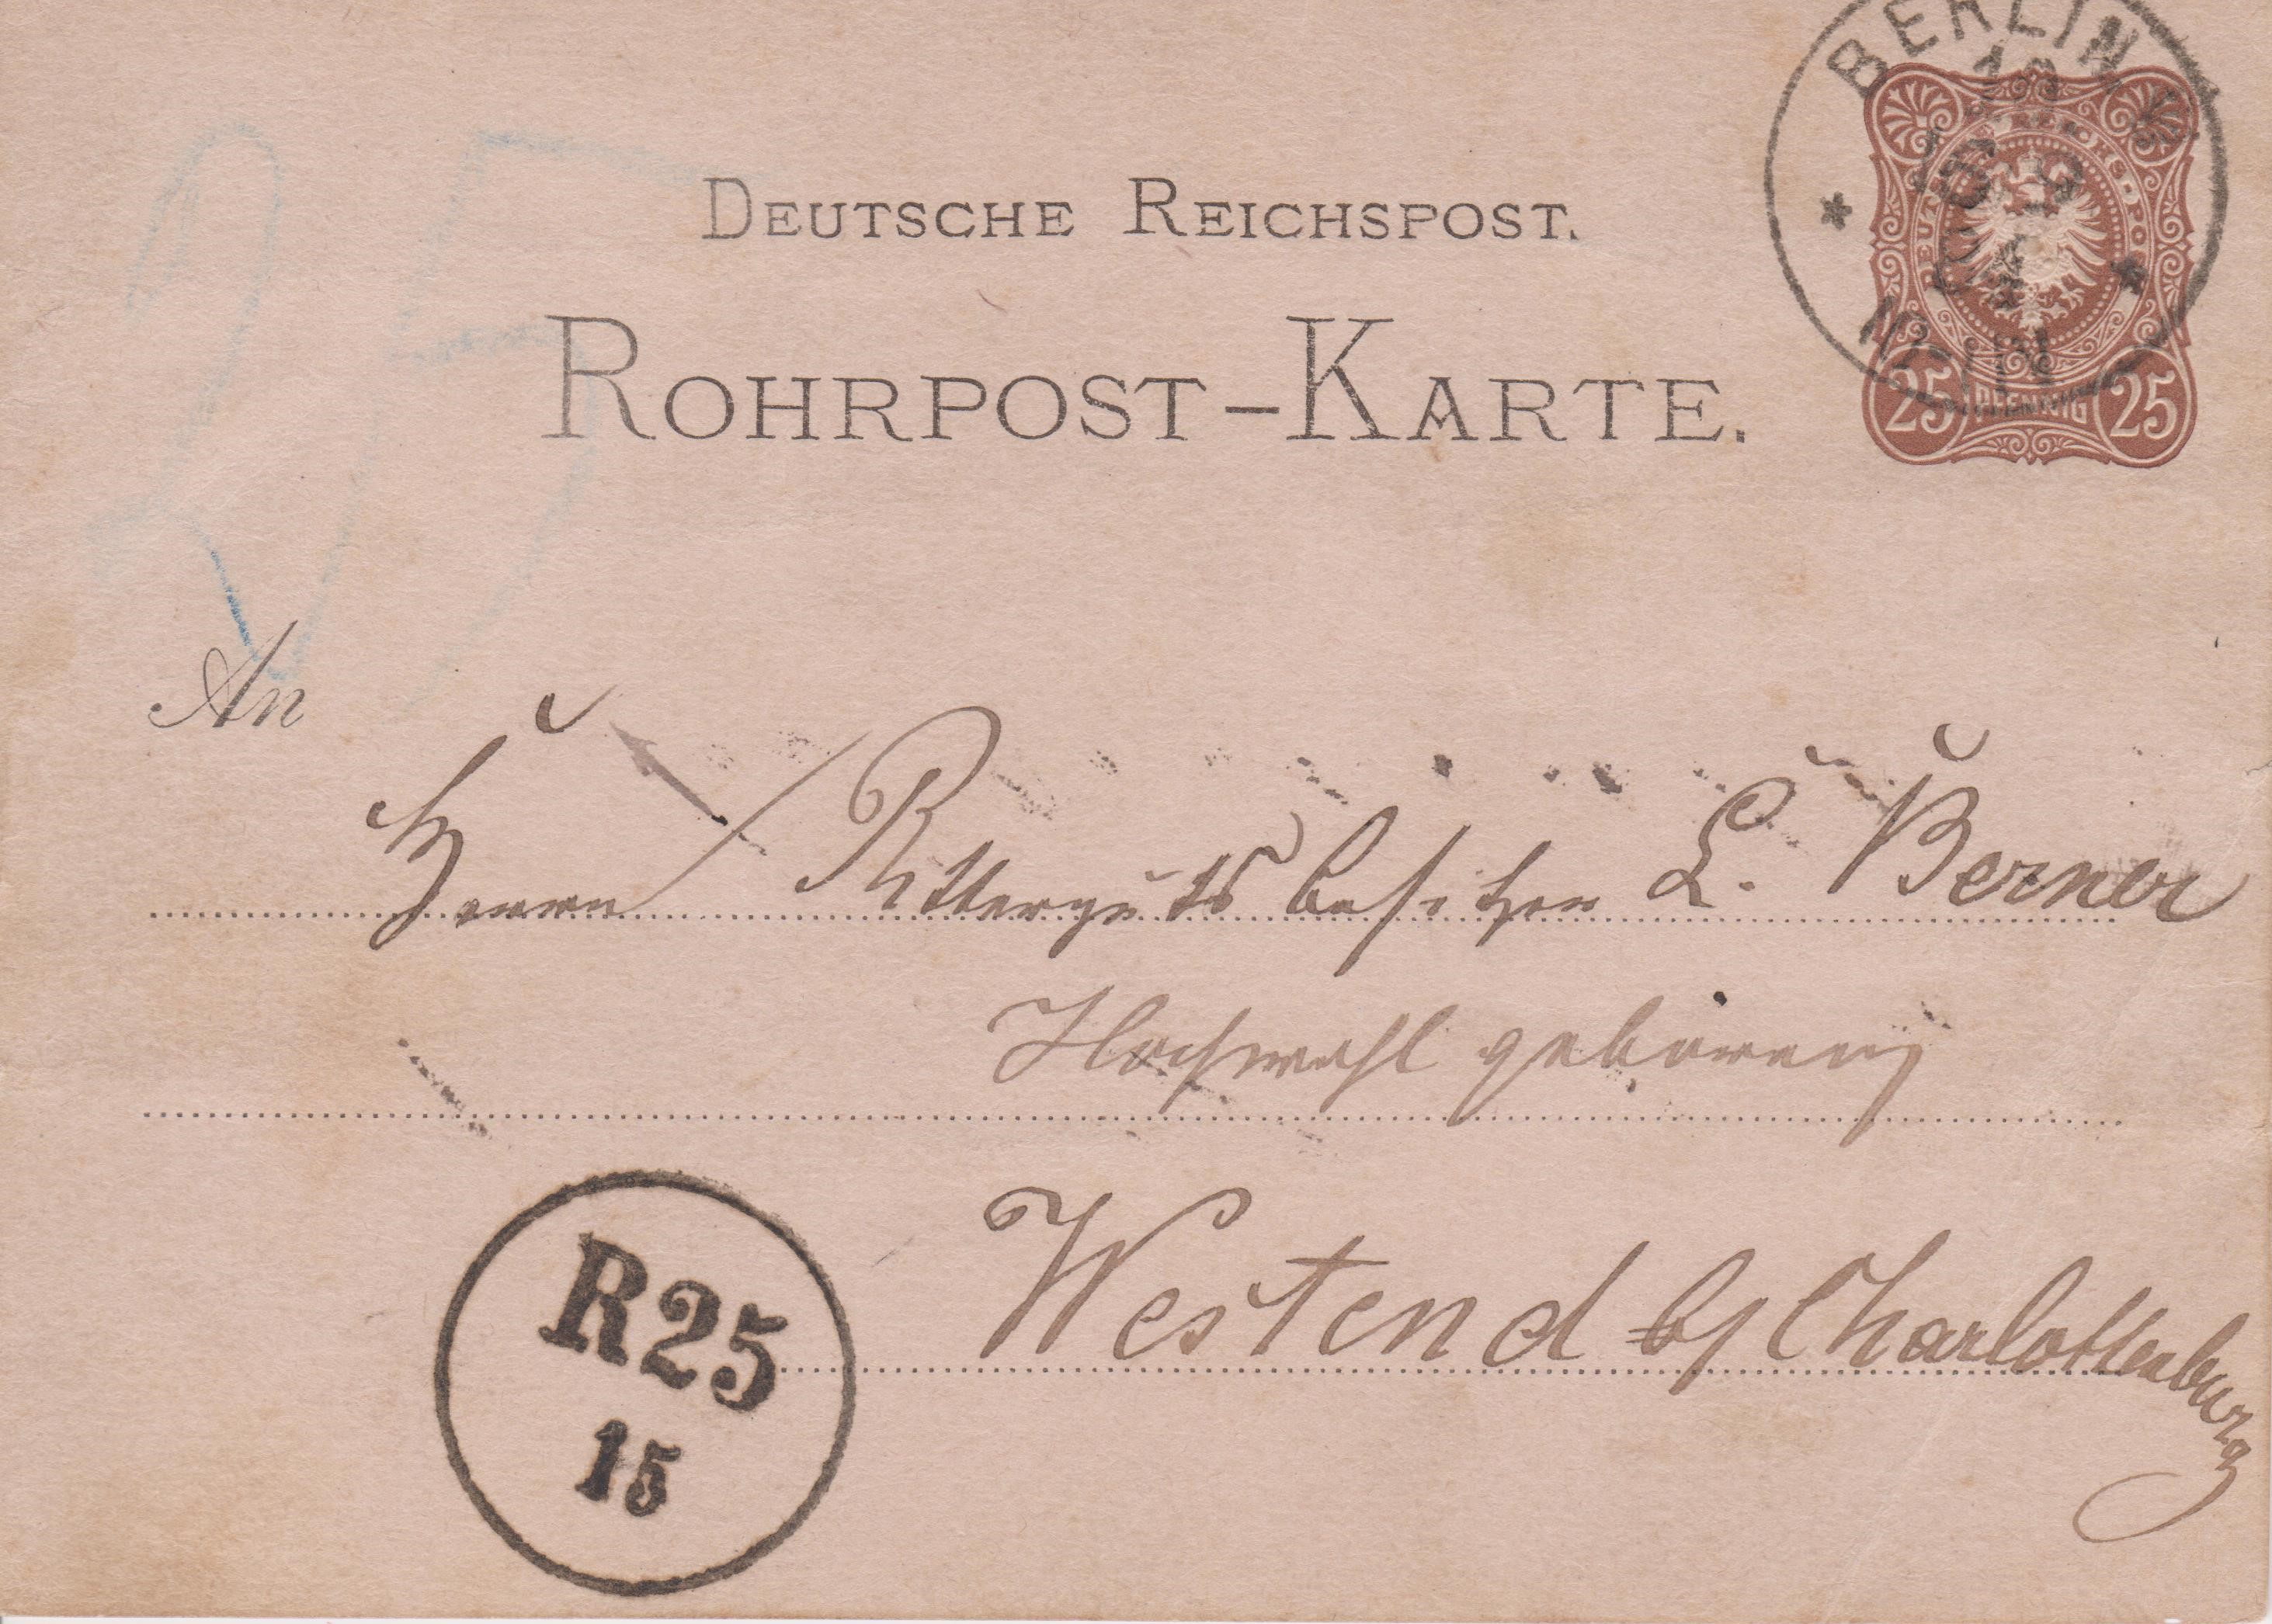 BERLIN
DEUTSCHE REICHSPOST.
ROHRPOST-KARTE.
25 PFENNIG 25
25
An
Herrn Rittergutsbesitzer L. Berner
Hochwohlgeboren
Westend b/ Charlottenburg
R25
15